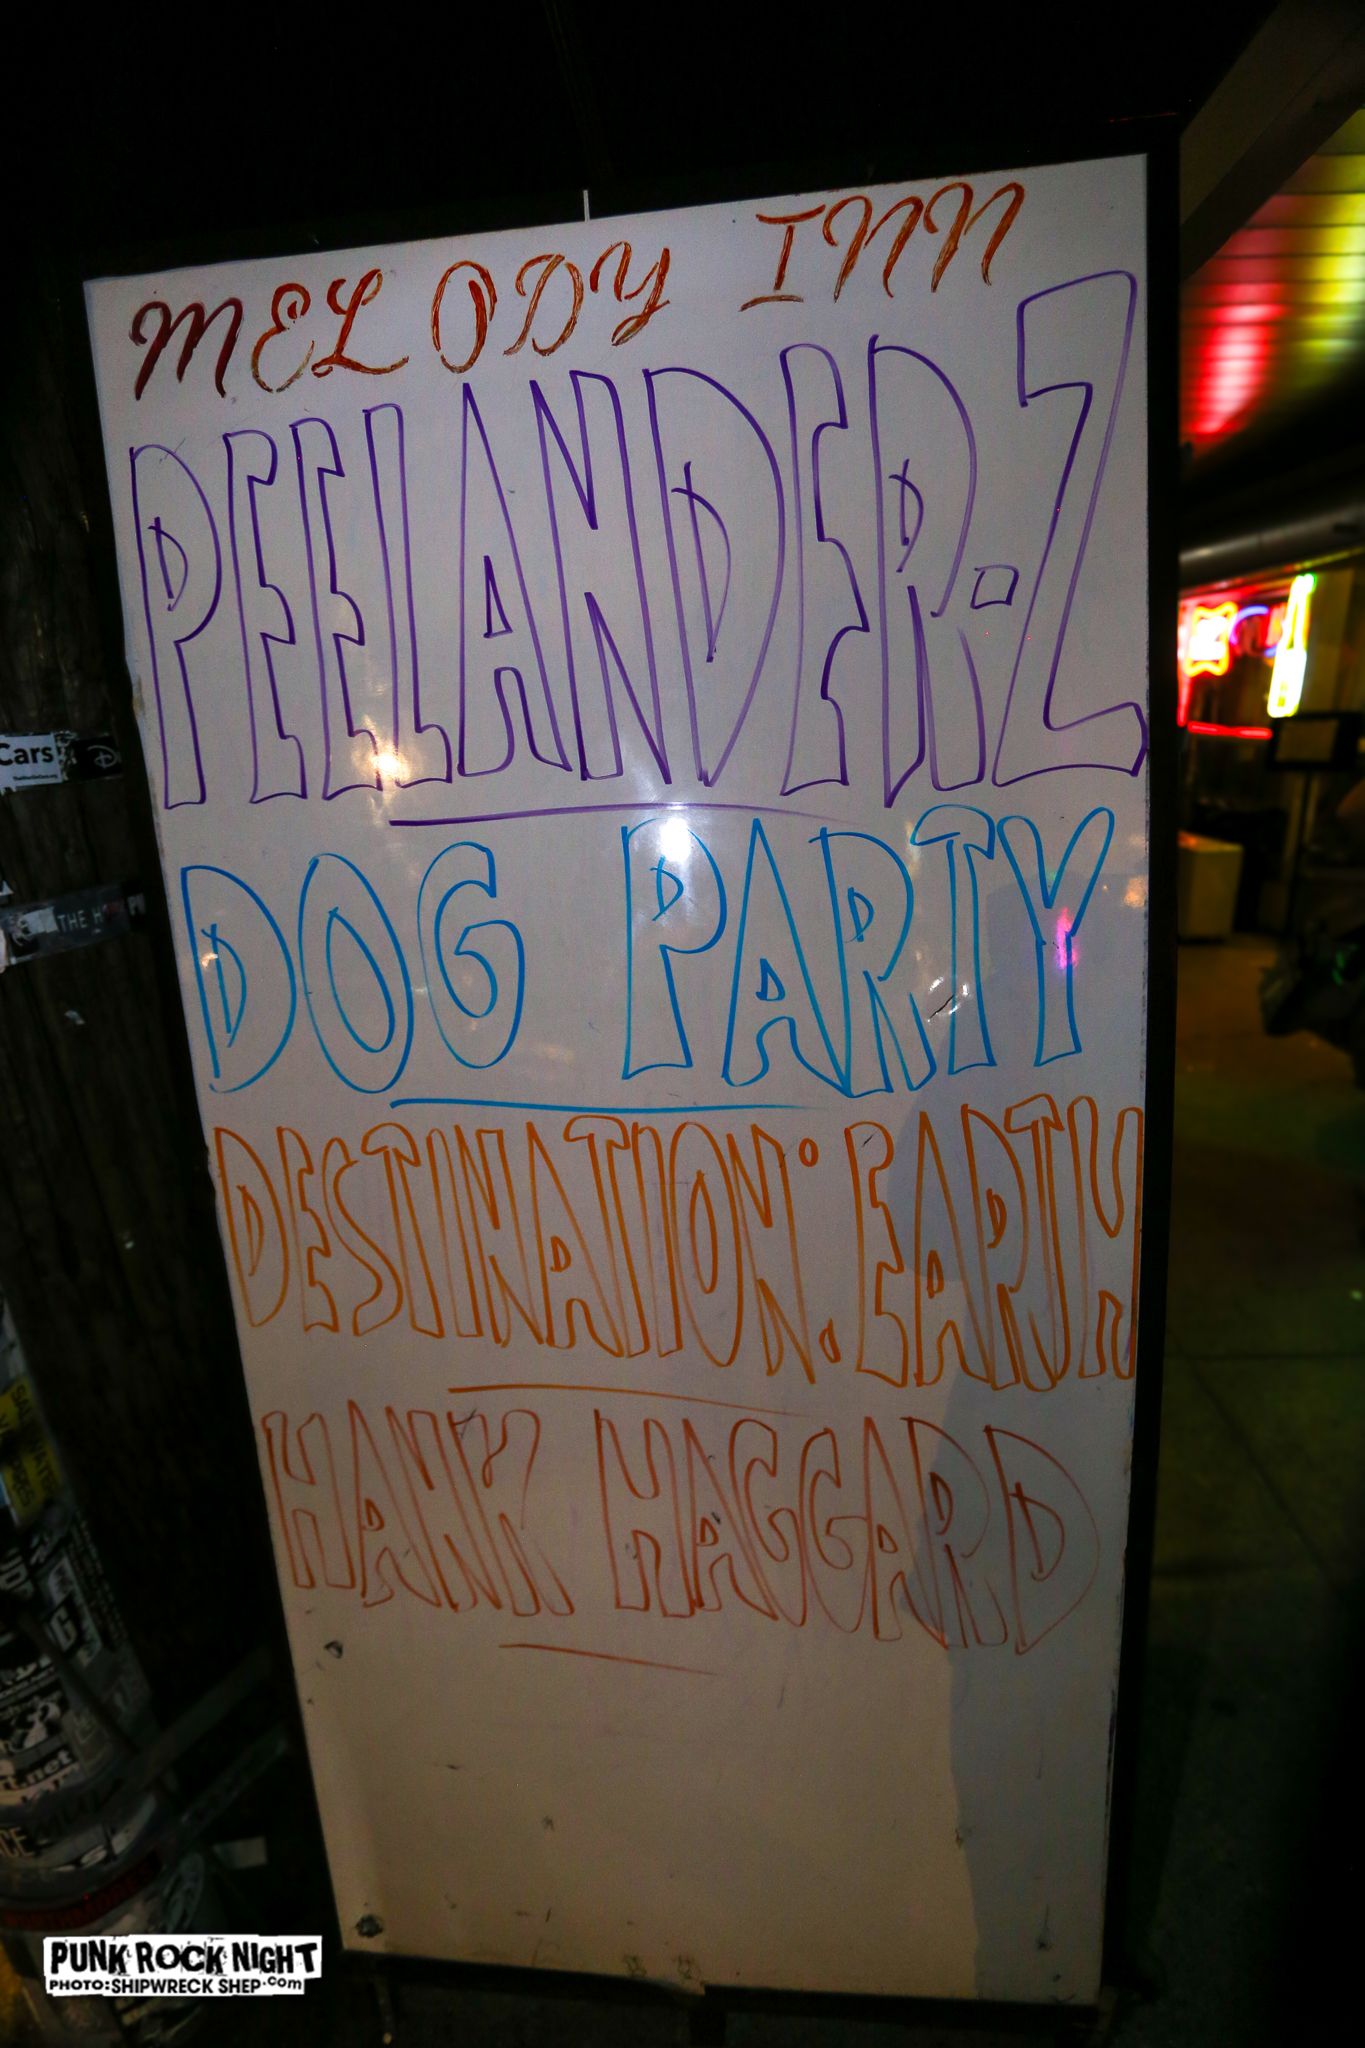 MELODY INN
PEELANDER-Z
DOG PARTY
DESTINATION: EARTH
HANK HAGGARD
Cars
THE
.net
PUNK ROCK NIGHT
PHOTO:SHIPWRECK SHEP.com